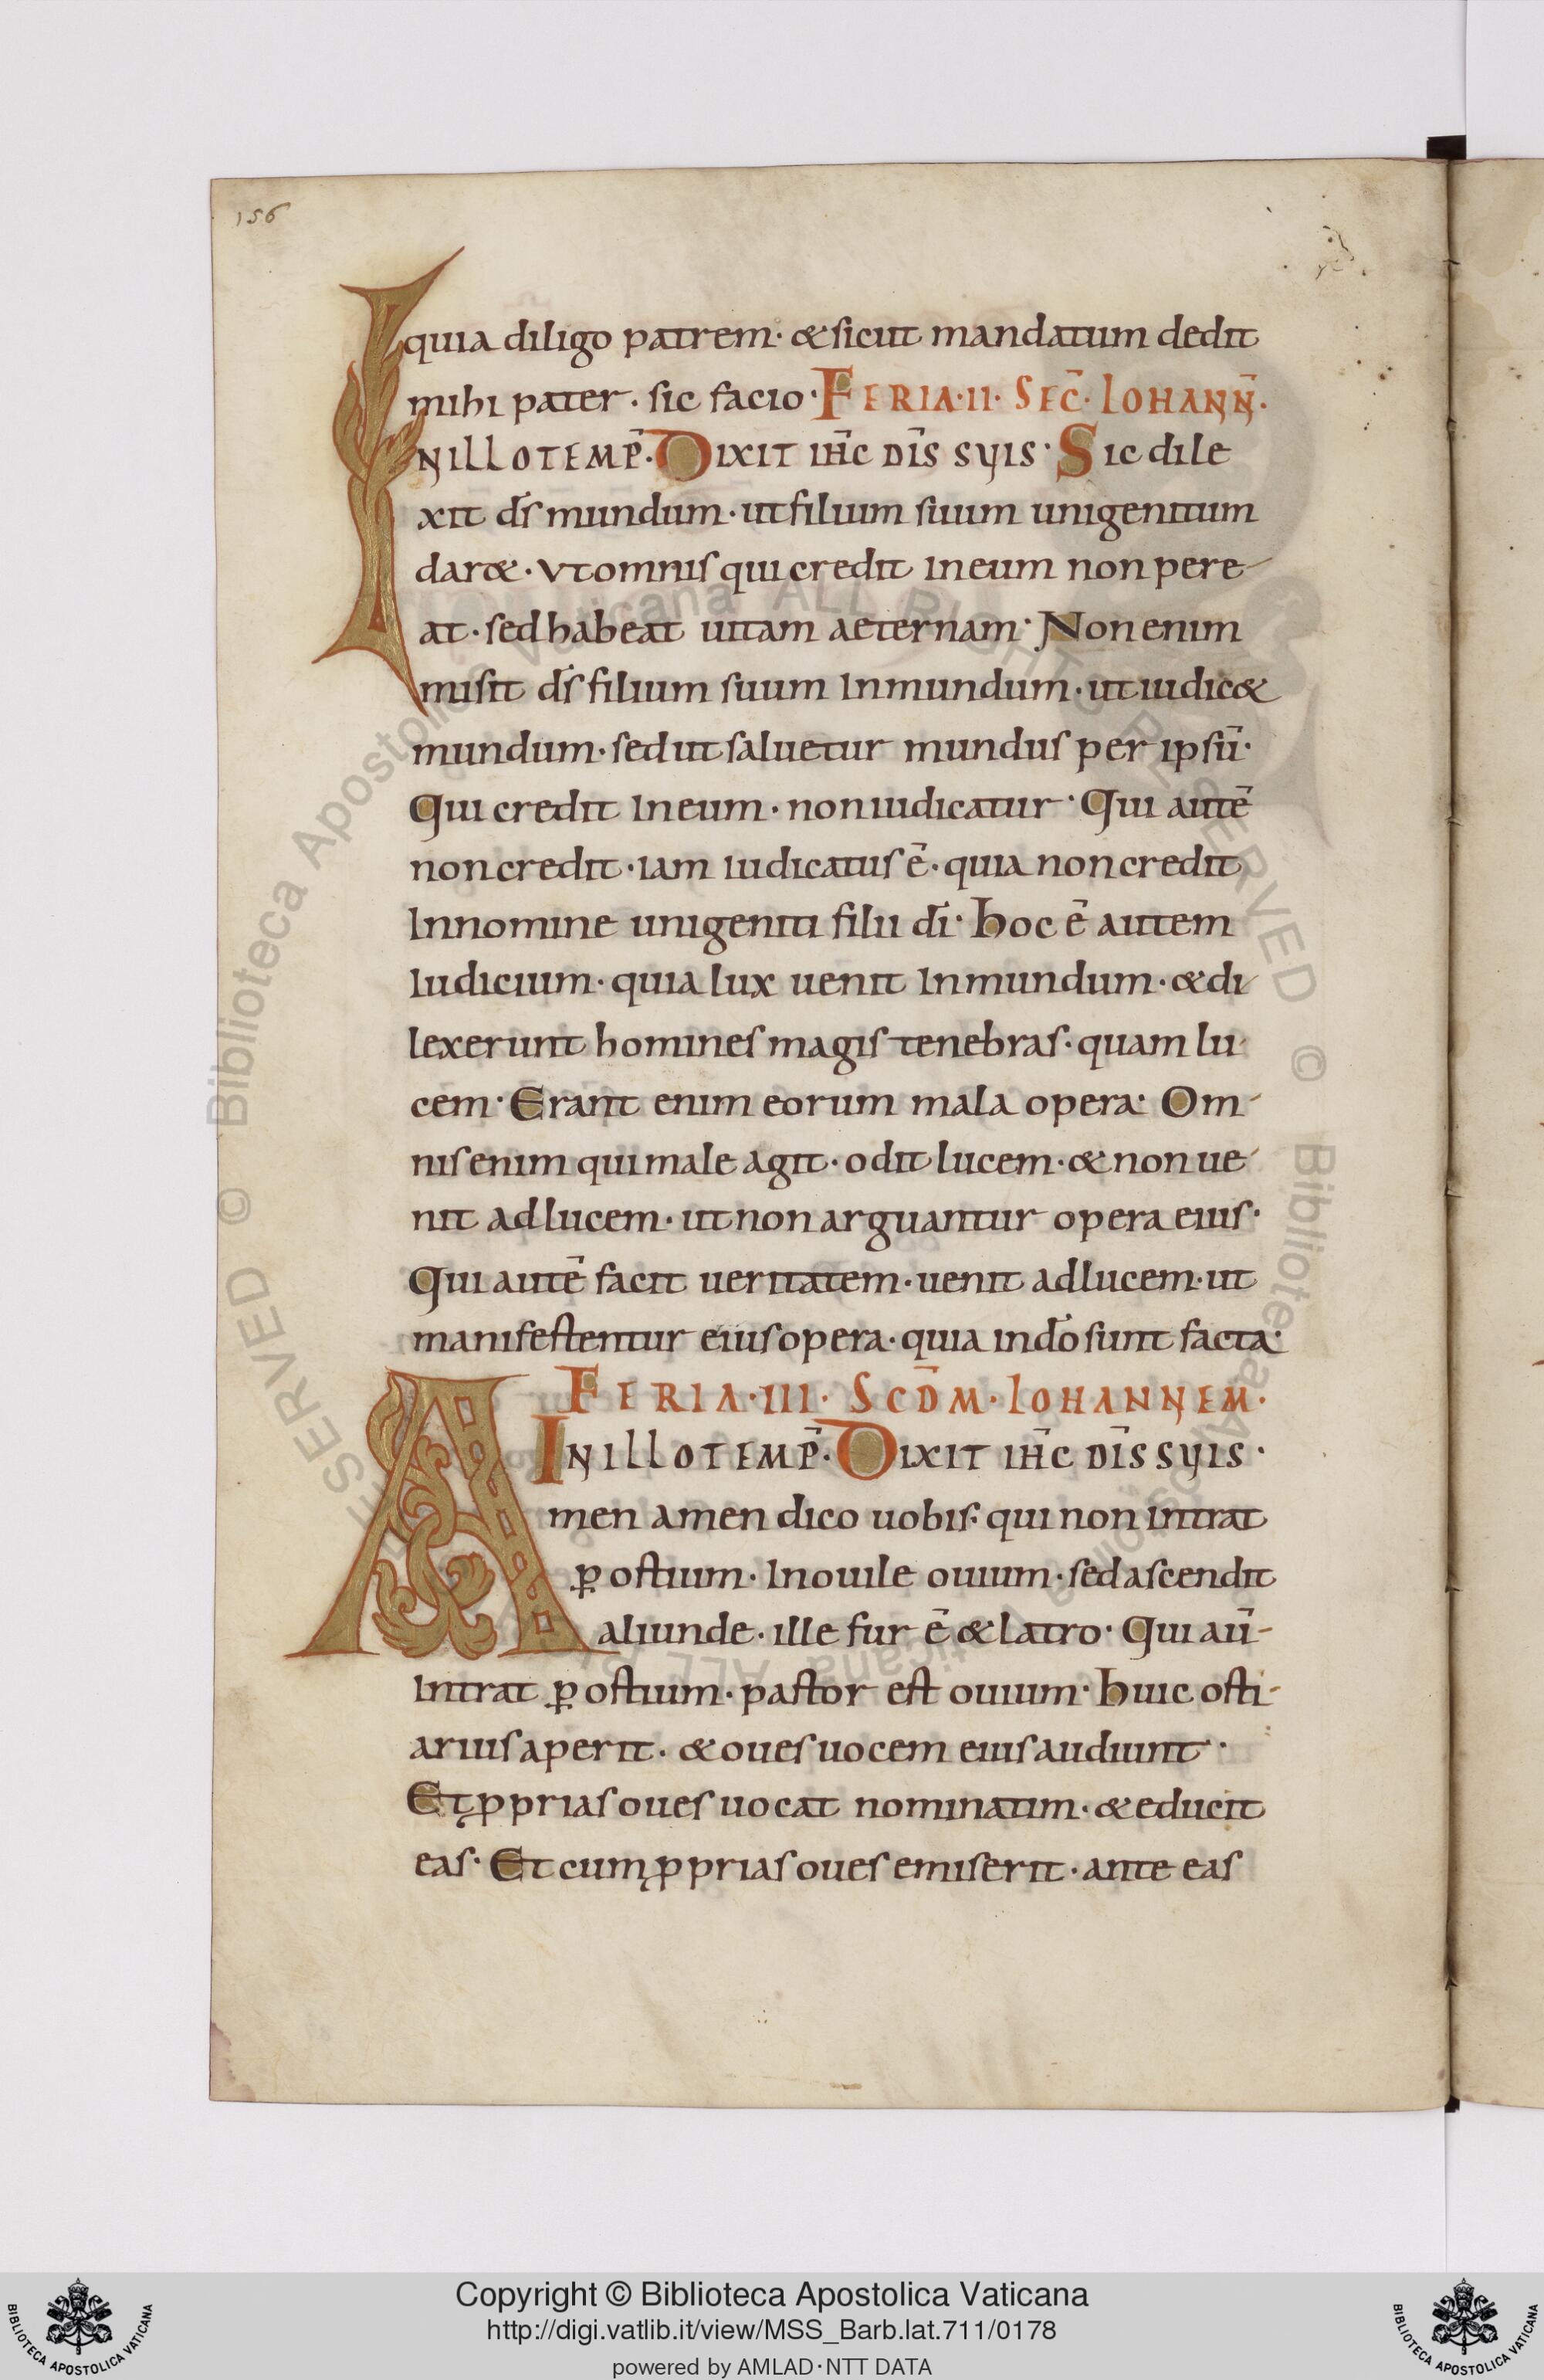 156
quia diligo patrem · & sicut mandatum dedit
mihi pater · sic facio · FERIA · II · SEC̄ · IOHANN̄ ·
IN ILLO TEMP̄ · DIXIT IH̄C DIS̄ SUIS · Sic dile
xit ds̄ mundum · ut filium suum unigenitum
dar& · Vt omnis qui credit in eum non pere-
at · sed habeat uitam aeternam · Non enim
misit ds̄ filium suum in mundum · ut iudic&
mundum · sed ut saluetur mundus per ipsū ·
Qui credit in eum · non iudicatur · Qui autē
non credit · iam iudicatus ē · quia non credit
In nomine unigeniti filii dī · Hoc ē autem
Iudicium · quia lux uenit in mundum · & di-
lexerunt homines magis tenebras · quam lu-
cem · Erant enim eorum mala opera · Om-
nis enim qui male agit · odit lucem · & non ue-
nit ad lucem · ut non arguantur opera eius ·
Qui autē facit ueritatem · uenit ad lucem · ut
manifestentur eius opera · quia in dō sunt facta ·
FERIA · III · SCD̄M · IOHANNEM ·
IN ILLO TEMP̄ · DIXIT IH̄C DIS̄ SUIS ·
Amen amen dico uobis · qui non intrat
ꝑ ostium · In ouile ouium · sed ascendit
aliunde · ille fur ē & latro · Qui aū-
Intrat ꝑ ostium · pastor est ouium · Huic osti-
arius aperit · & oues uocem eius audiunt ·
Et ꝓprias oues uocat nominatim · & educit
eas · Et cum ꝓprias oues emiserit · ante eas
© Biblioteca Apostolica Vaticana ALL RIGHTS RESERVED
Copyright © Biblioteca Apostolica Vaticana
http://digi.vatlib.it/view/MSS_Barb.lat.711/0178
powered by AMLAD · NTT DATA
BIBLIOTECA APOSTOLICA VATICANA
BIBLIOTECA APOSTOLICA VATICANA